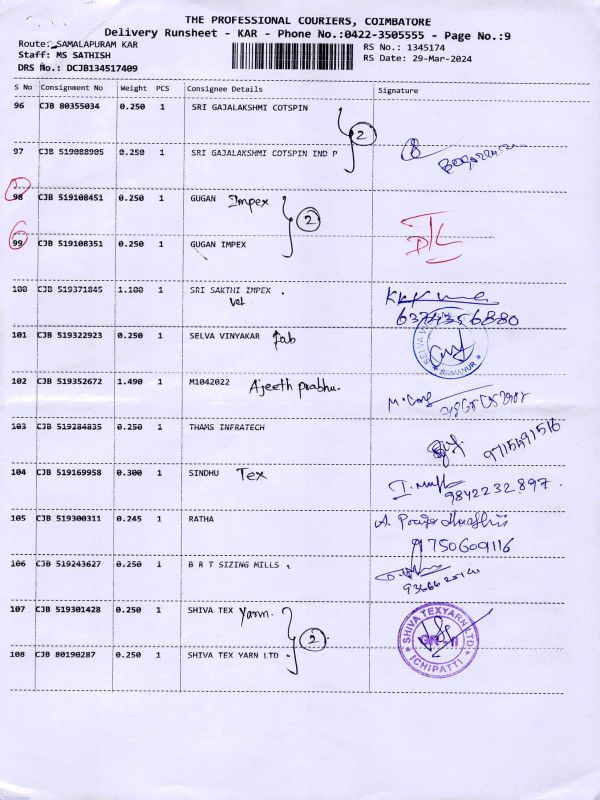 THE PROFESSIONAL COURIERS, COIMBATORE
Delivery Runsheet - KAR - Phone No.:0422-3505555 - Page No.:9
Route: SAMALAPURAM KAR
RS No.: 1345174
Staff: MS SATHISH
RS Date: 29-Mar-2024
DRS No.: DCJB134517409
S No Consignment No Weight PCS Consignee Details Signature
96 CJB 80355034 0.250 1 SRI GAJALAKSHMI COTSPIN
2
97 CJB 519088905 0.250 1 SRI GAJALAKSHMI COTSPIN IND P
98 CJB 519108451 0.250 1 GUGAN Impex
2
99 CJB 519108351 0.250 1 GUGAN IMPEX
100 CJB 519371845 1.100 1 SRI SAKTHI IMPEX .
Vel
6374356880
101 CJB 519322923 0.250 1 SELVA VINYAKAR Fab
SOMANUR
102 CJB 519352672 1.490 1 M1042022 Ajeeth prabhu.
103 CJB 519284835 0.250 1 THAMS INFRATECH
9715491516
104 CJB 519169958 0.300 1 SINDHU Tex
9842232897.
105 CJB 519300311 0.245 1 RATHA
9750609116
106 CJB 519243627 0.250 1 B R T SIZING MILLS .
107 CJB 519301428 0.250 1 SHIVA TEX Yarn.
2
SHIVA TEXYARN LTD
ICHIPATTI
108 CJB 80190287 0.250 1 SHIVA TEX YARN LTD .